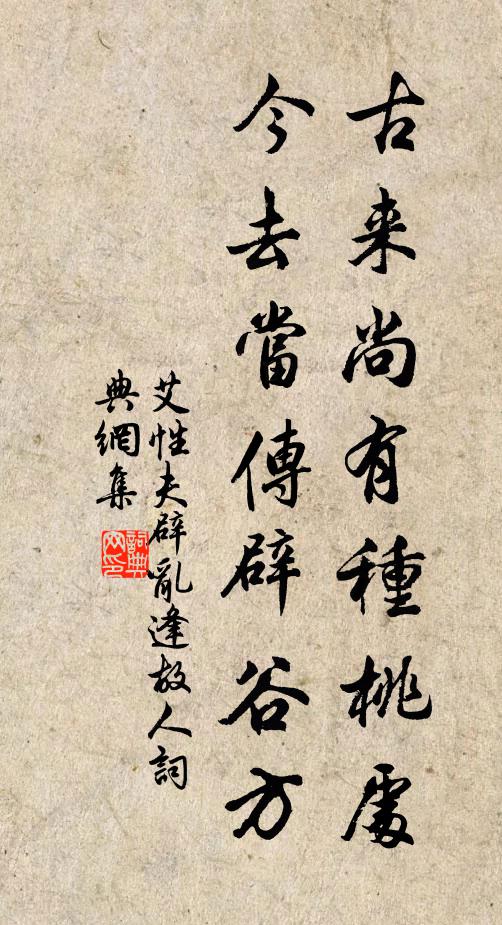 古来尚有種桃處
今去當傳辟谷方
艾性夫辟亂逢故人詞
典網集
詞典
网印